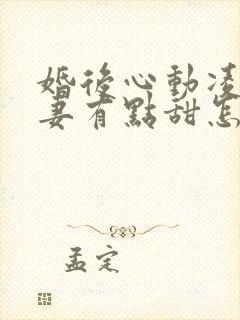 婚後心動凌
妻有點甜怎
孟定